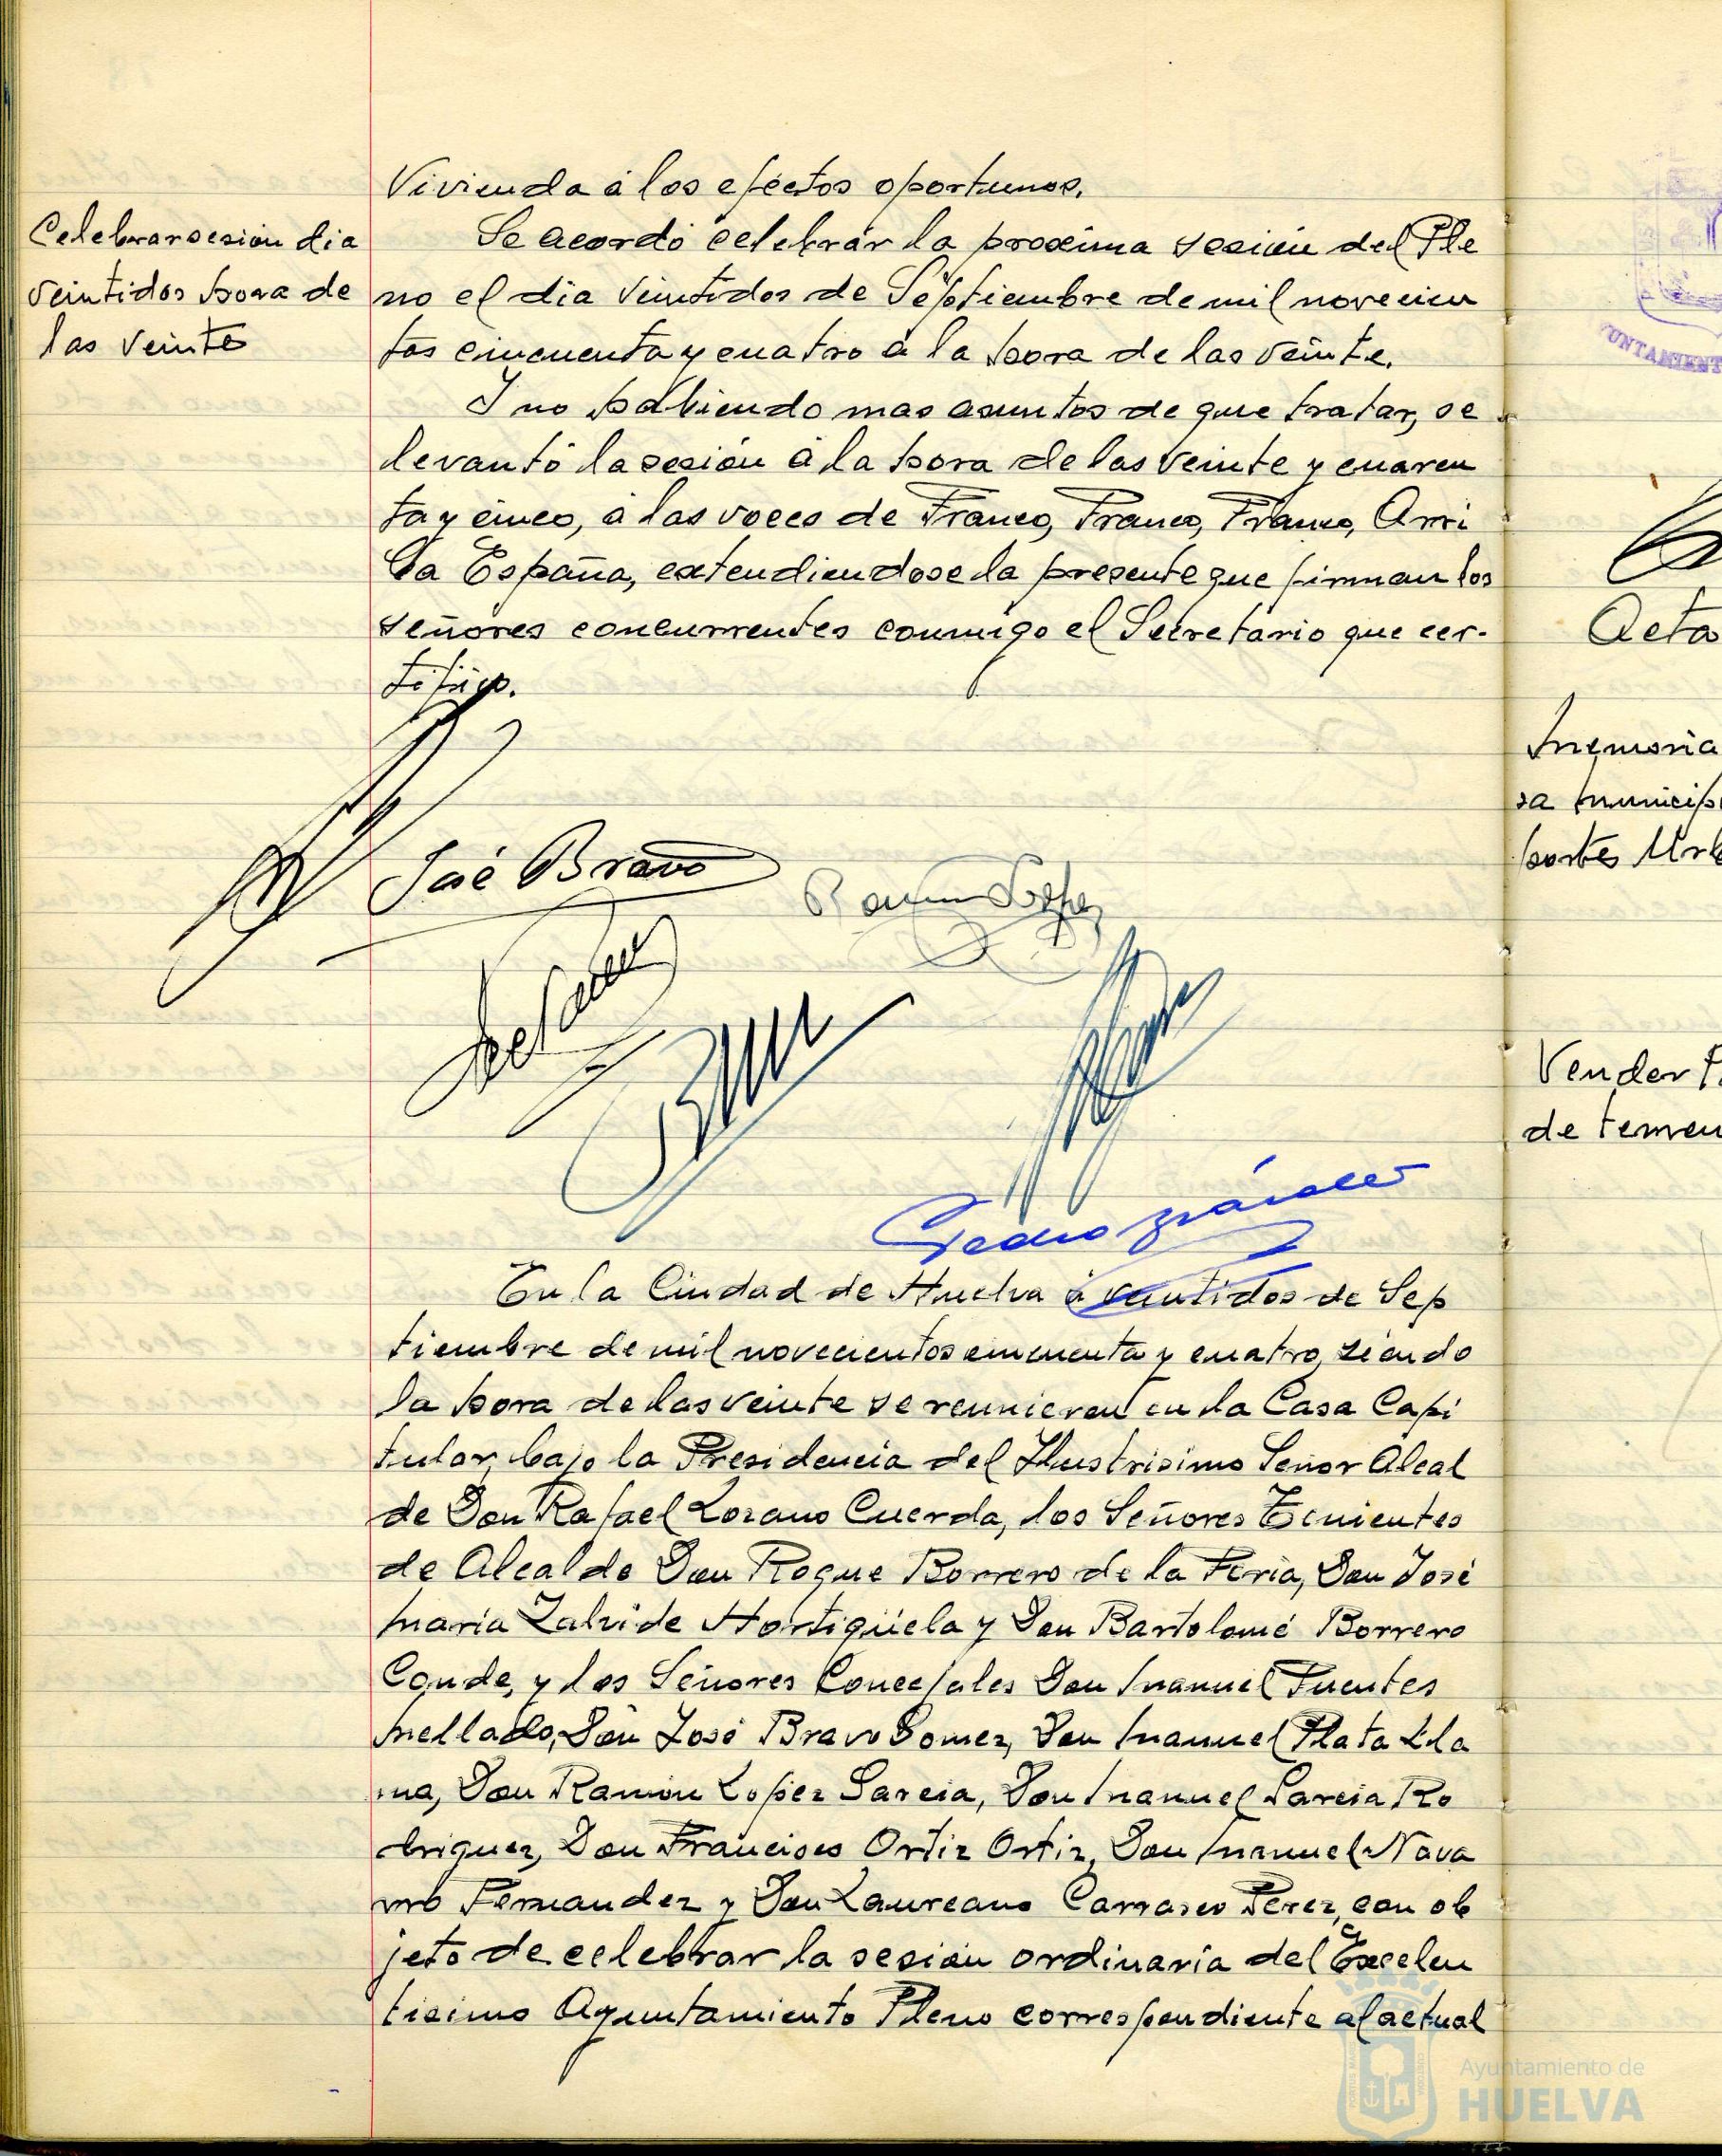 Vivienda á los eféctos oportunos.
Celebrar sesión dia
veintidos hora de
las veinte
Se acordó celebrar la proxima sesión del Ple
no el dia veintidos de Séptiembre de mil novecien
tos cincuenta y cuatro á la hora de las veinte.
I no habiendo mas asuntos de que tratar, se
levantó la sesión á la hora de las veinte y cuaren
ta y cinco, á las voces de Franco, Franco, Franco, Arri
ba España, extendiendose la presente que firman los
señores concurrentes conmigo el Secretario que cer-
tifico.
José Bravo
Ramón López
Pedro
En la Ciudad de Huelva á veintidos de Sep
tiembre de mil novecientos cincuenta y cuatro, siendo
la hora de las veinte se reunieron en la Casa Capi
tular, bajo la Presidencia del Ilustrisimo Señor Alcal
de Don Rafael Lozano Cuerda, los Señores Tenientes
de Alcalde Don Roque Borrero de la Feria, Don José
Maria Zalvide Hortigüela y Don Bartolomé Borrero
Conde, y los Señores Concejales Don Manuel Fuentes
Mellado, Don José Bravo Gomez, Don Manuel Plata Lla
na, Don Ramón Lopez Garcia, Don Manuel Garcia Ro
driguez, Don Francisco Ortiz Ortiz, Don Manuel Nava
rro Fernandez y Don Laureano Carrasco Perez, con ob
jeto de celebrar la sesión ordinaria del Excelen
tisimo Ayuntamiento Pleno correspondiente al actual
UNTAMIENT
Acta
Memoria
sa municip
portes Urb
Vender
de terren
Ayuntamiento de
HUELVA